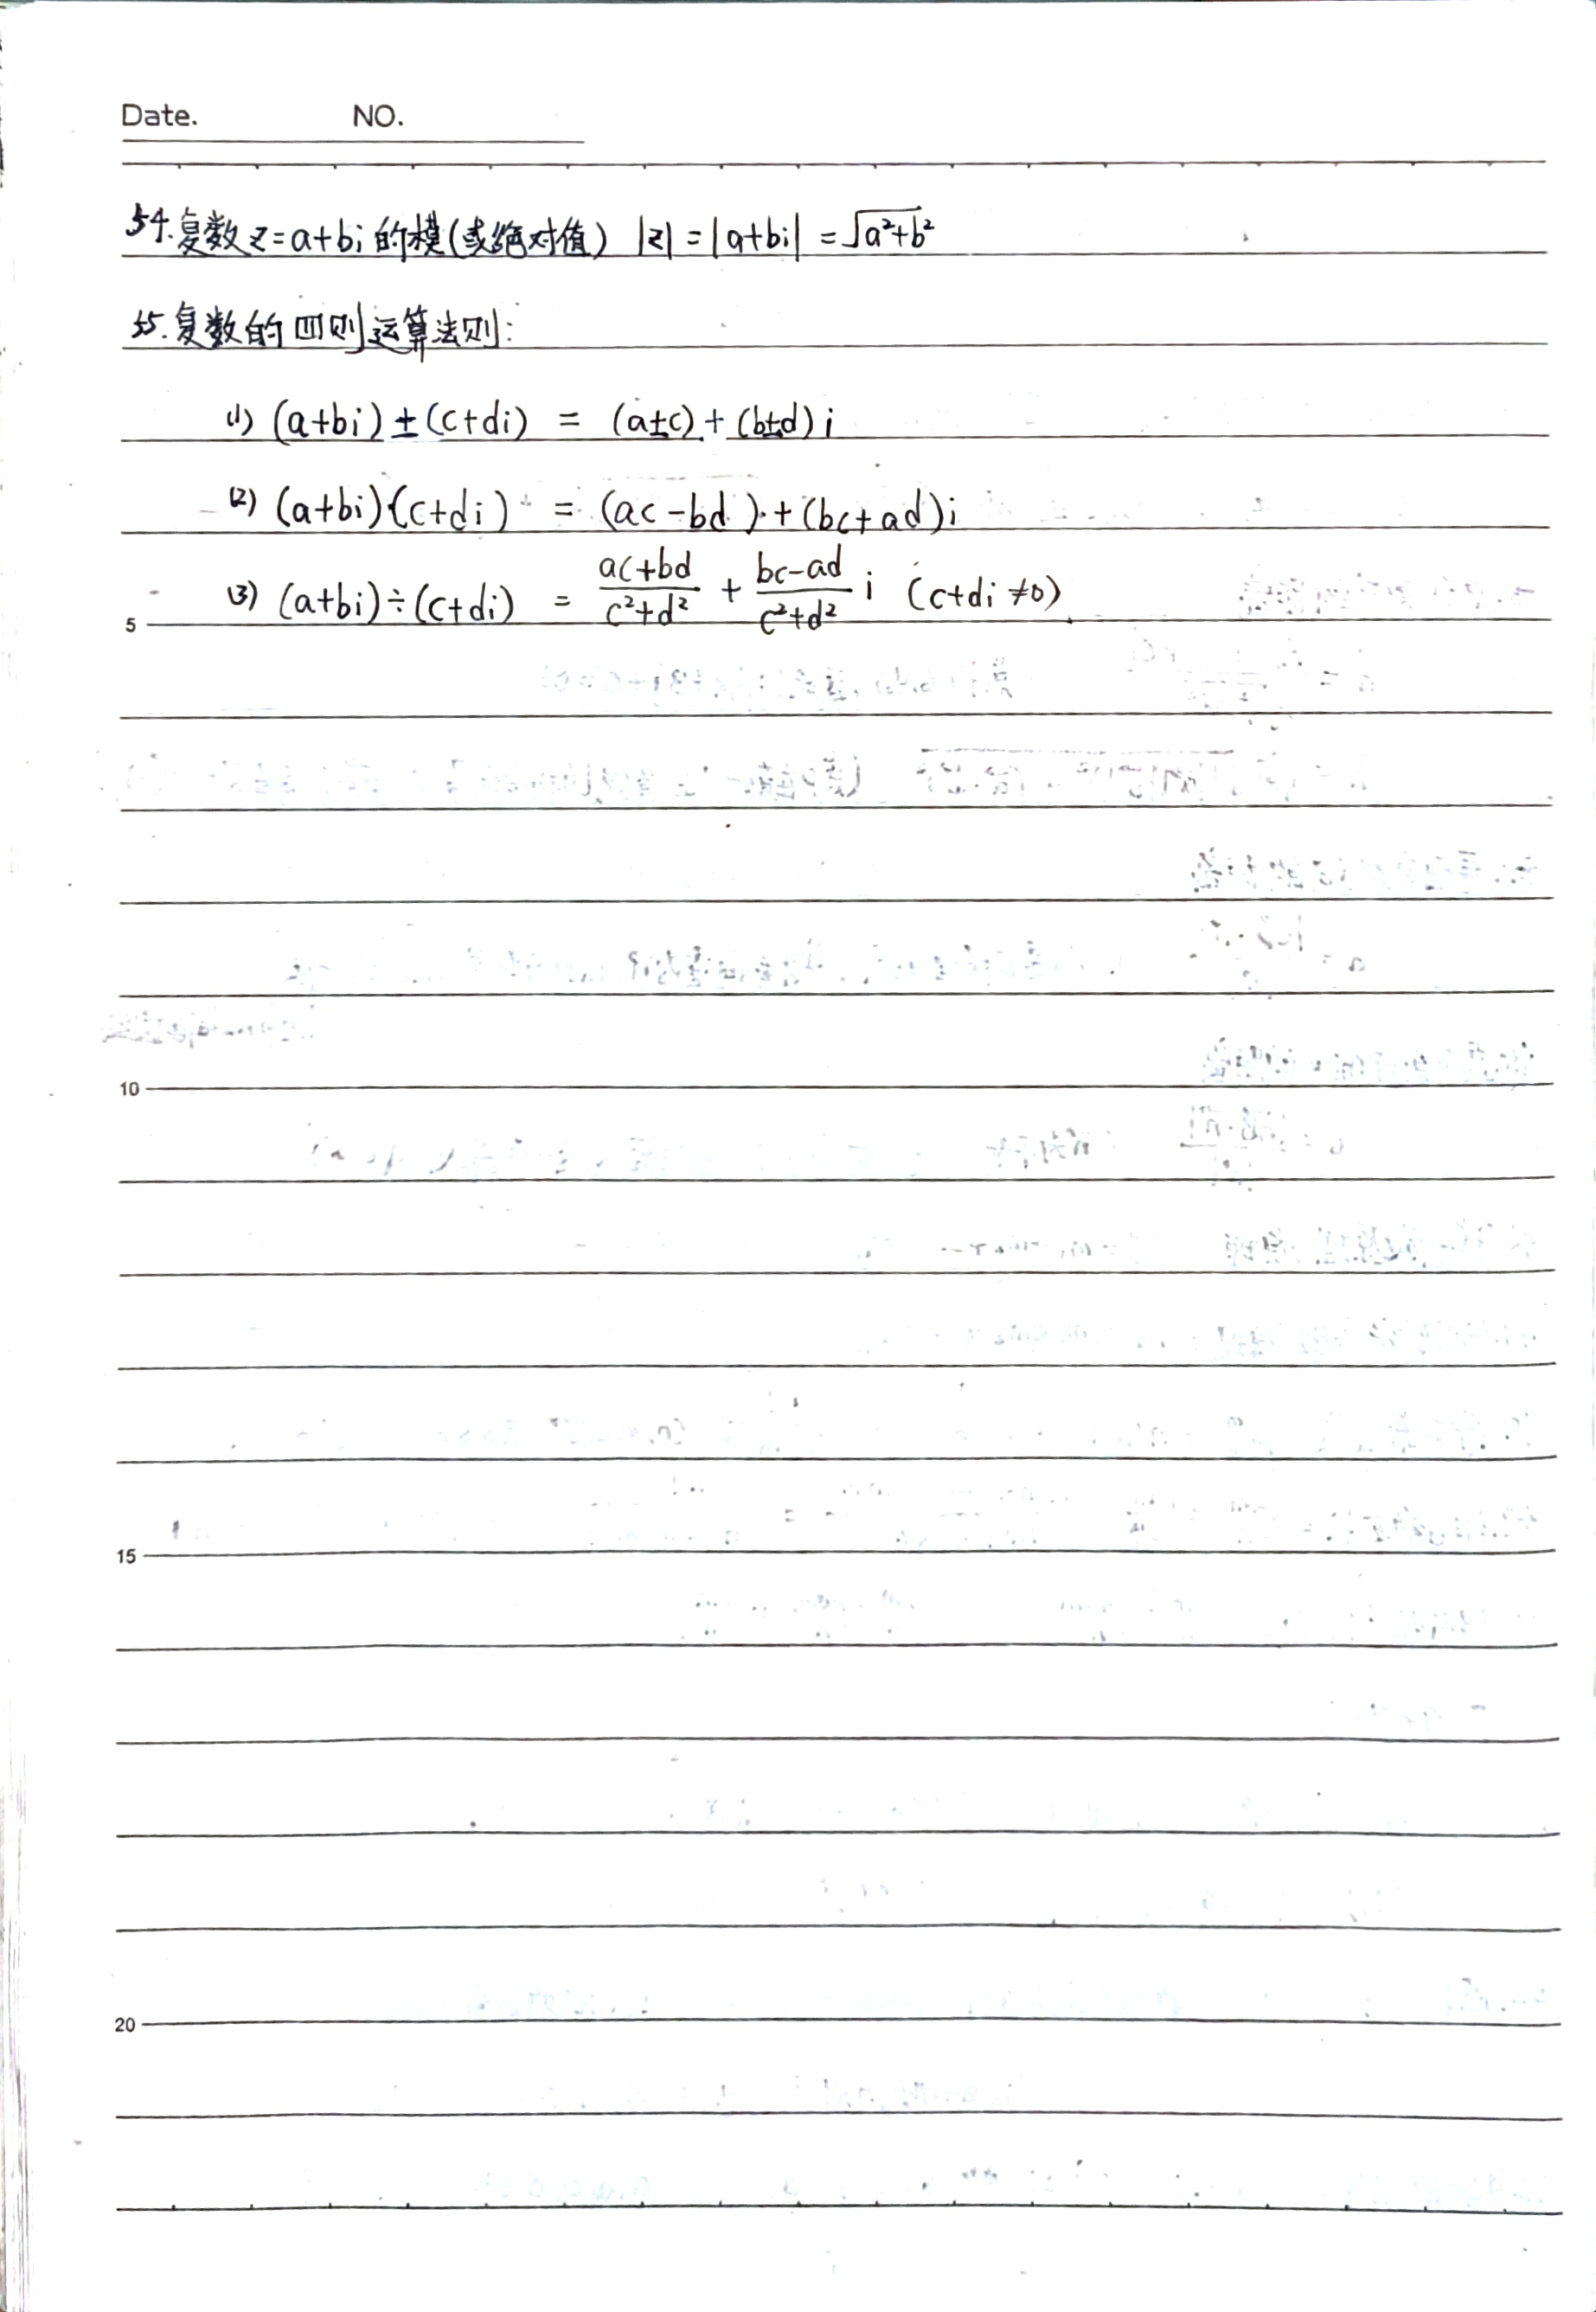 Date. NO.
54.复数z=a+bi的模(或绝对值) |z|=|a+bi|=√(a²+b²)
55.复数的四则运算法则:
(1) (a+bi)±(c+di) = (a±c)+(b±d)i
(2) (a+bi)(c+di) = (ac-bd)+(bc+ad)i
(3) (a+bi)÷(c+di) = (ac+bd)/(c²+d²) + (bc-ad)/(c²+d²) i (c+di≠0)
5
10
15
20